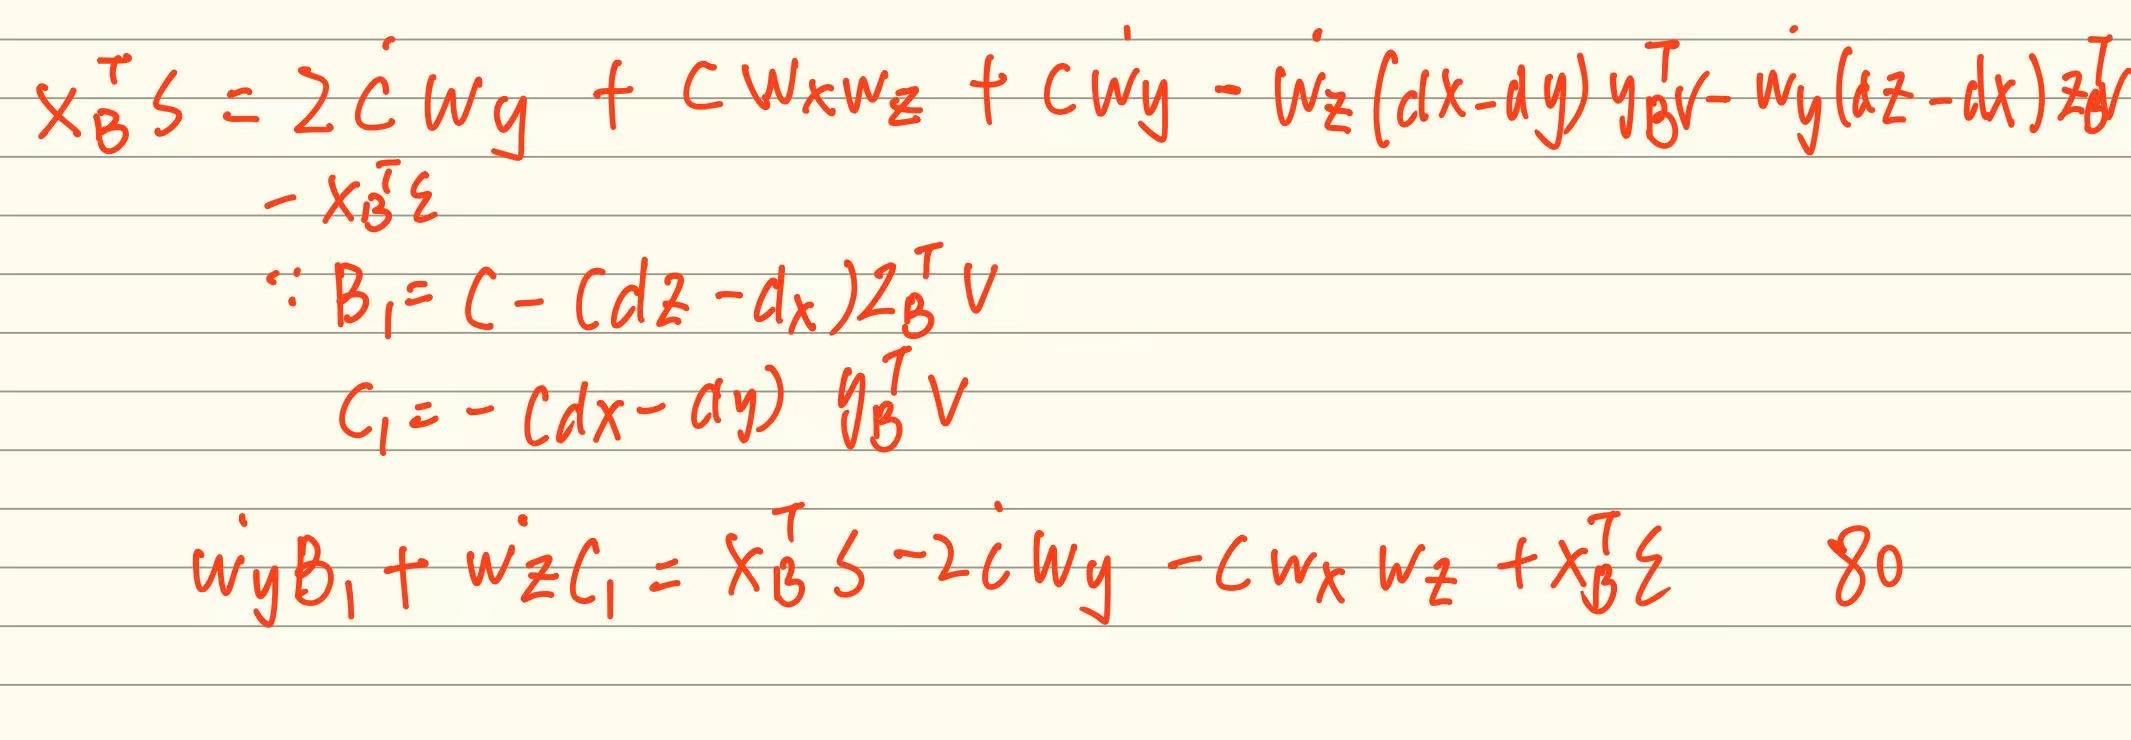 x_B^T s = 2ċ w_y + c w_x w_z + c ẇ_y - ẇ_z (dx - dy) y_B^T v - ẇ_y (dz - dx) z_B^T v
- x_B^T ξ
∵ B_1 = c - (dz - dx) z_B^T v
C_1 = - (dx - dy) y_B^T v
ẇ_y B_1 + ẇ_z C_1 = x_B^T s - 2ċ w_y - c w_x w_z + x_B^T ξ 80